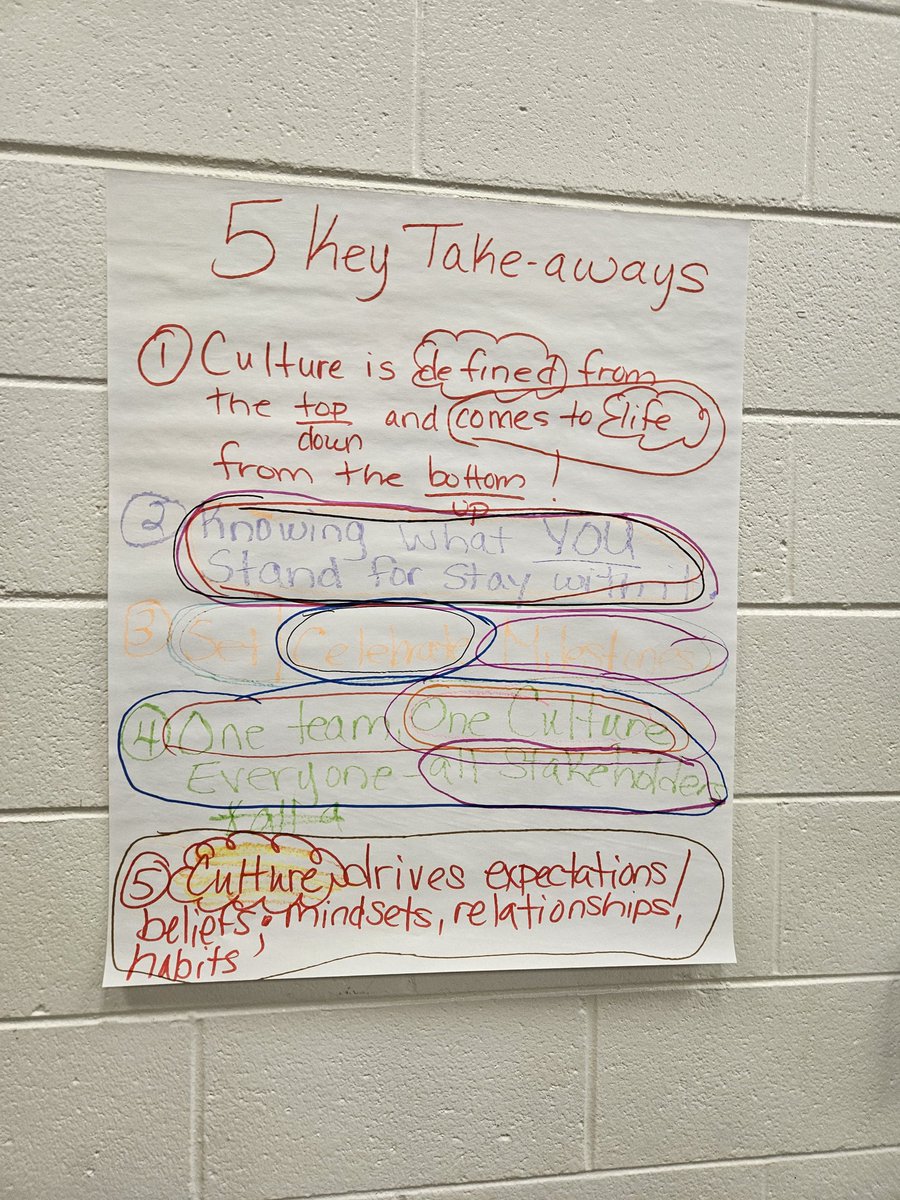 5 Key Take-aways
① Culture is defined from
the top and comes to life
down
from the bottom!
up
② Knowing what YOU
Stand for stay with it.
③ Set/Celebrate Milestones
④ One team, One Culture
Everyone - all Stakeholders
⑤ Culture drives expectations/
beliefs, mindsets, relationships,
habits